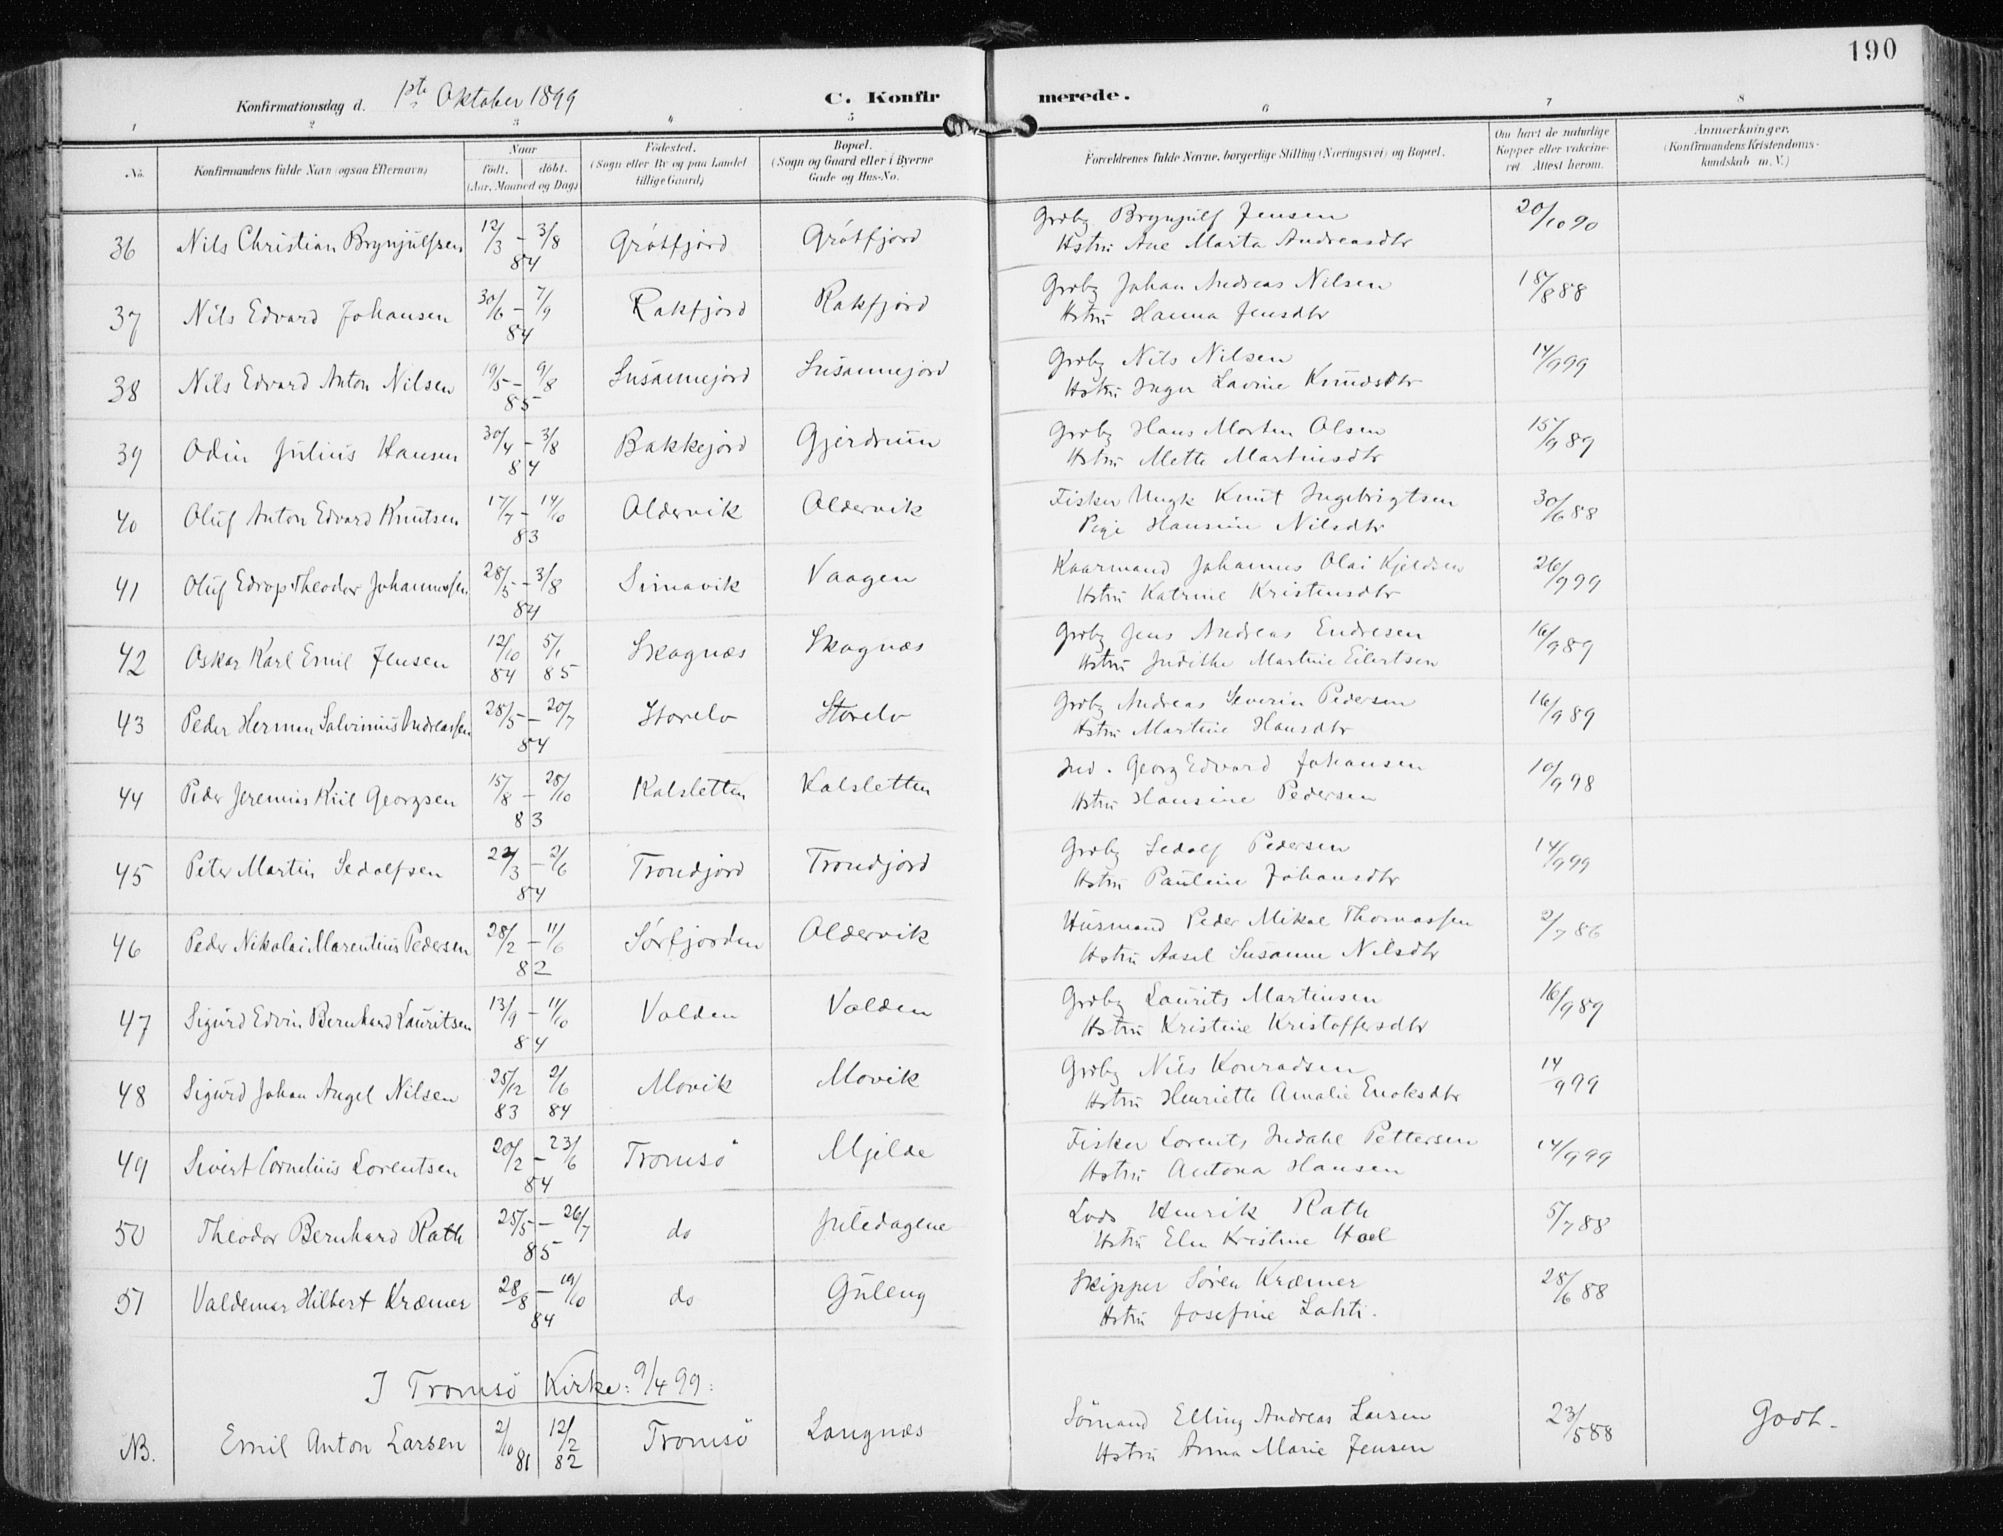 190
Konfirmationsdag d. 1ste Oktober 1899 C. Konfirmerede.
1 2 3 4 5 6 7 8
No. Konfirmandens fulde Navn (ogsaa Efternavn) Naar født. døbt. (Aar, Maaned og Dag) Fødested. (Sogn eller By og paa Landet tillige Gaard) Bopæl. (Sogn og Gaard eller i Byerne Gade og Hus-No. Forældrenes fulde Navne, borgerlige Stilling (Næringsvei) og Bopæl. Om havt de naturlige Kopper eller vakcineret. Attest herom. Anmærkninger. (Konfirmandens Kristendomskundskab m. V.)
36 Nils Christian Brynjulfsen 12/3 – 3/8 84 Grøtfjord Grøtfjord Grdbr Brynjulf Jensen 20/10 90
Hstru Ane Marta Andreasdtr
37 Nils Edvard Johansen 30/6 – 7/9 84 Rakfjord Rakfjord Grdbr Johan Andreas Nilsen 18/8 88
Hstru Hanna Jensdtr
38 Nils Edvard Anton Nilsen 19/5 – 9/8 85 Susannejord Susannejord Grdbr Nils Nilsen 14/9 99
Hstru Inger Lavine Knudsdtr
39 Odin Julius Hansen 30/4 – 3/8 84 Bakkejord Gjerdrum Grdbr Hans Morten Olsen 15/9 89
Hstru Mette Martinsdtr
40 Oluf Anton Edvard Knutsen 17/7 – 14/10 83 Oldervik Oldervik Fisker Ungk Knut Ingebrigtsen 30/6 88
Pige Hansine Nilsdtr
41 Oluf Edrop Theodor Johannessen 28/5 – 3/8 84 Simavik Vaagen Kaarmand Johannes Olai Kjeldsen 26/9 99
Hstru Katrine Kristensdtr
42 Oskar Karl Emil Jensen 12/10 84 5/1 85 Skognæs Skognæs Grdbr Jens Andreas Endresen 16/9 89
Hstru Judithe Martine Eilertsen
43 Peder Hermen Salvinius Andreassen 28/5 – 20/7 84 Storelv Storelv Grdbr Andreas Severin Pedersen 16/9 89
Hstru Martine Hansdtr
44 Peder Jeremias Kiil Georgsen 15/8 – 28/10 83 Kalsletten Kalsletten Ind. Georg Edvard Johansen 10/9 98
Hstru Hansine Pedersen
45 Peter Martin Sedolfsen 22/3 – 2/6 84 Trondjord Trondjord Grdbr Sedolf Pedersen 14/9 99
Hstru Pauline Johansdtr
46 Peder Nikolai Marentius Pedersen 28/2 – 11/6 82 Sørfjorden Oldervik Husmand Peder Mikal Thomassen 2/7 86
Hstru Aasel Susanne Nilsdtr
47 Sigurd Edvin Bernhard Lauritsen 13/9 – 11/10 84 Volden Volden Grdbr Laurits Martinsen 16/9 89
Hstru Kristine Kristoffersdtr
48 Sigurd Johan Angel Nilsen 25/12 83 2/6 84 Movik Movik Grdbr Nils Konradsen 14/9 99
Hstru Henriette Amalie Enoksdtr
49 Sivert Cornelius Lorentsen 20/2 – 23/6 84 Tromsö Mjelde Fisker Lorents Indahl Pettersen 14/9 99
Hstru Antona Hansen
50 Theodor Bernhard Rath 25/5 – 26/7 85 do Juledagene Lods Henrik Rath 5/7 88
Hstru Elen Kristine Hoel
51 Valdemar Hilbert Kræmer 28/8 – 19/10 84 do Guleng Skipper Sören Kræmer 28/6 88
Hstru Josefine Lahti.
I Tromsö Kirke: 9/4 99:
NB. Emil Anton Larsen 2/10 81 12/2 82 Tromsö Langnæs Sömand Elling Andreas Larsen 23/5 88 Godt.
Hstru Anna Marie Jensen